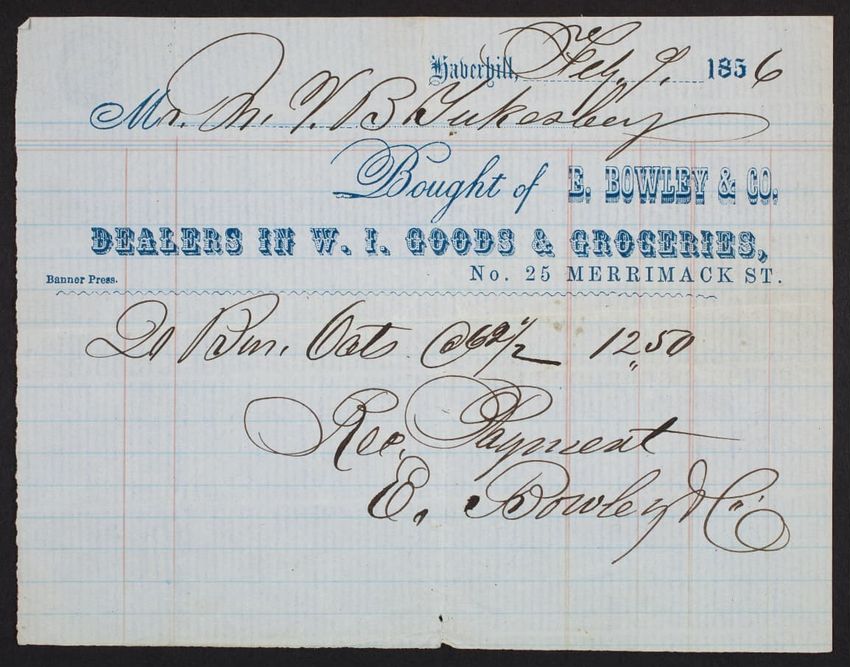 Haverhill, Feb. 9, 1856
Mr. M. V. B. Tukesbery
Bought of E. BOWLEY & CO.
DEALERS IN W. I. GOODS & GROCERIES,
Banner Press. No. 25 MERRIMACK ST.
20 Bus. Oats @62 1/2 12.50
Rec. Payment
E. Bowley & Co.